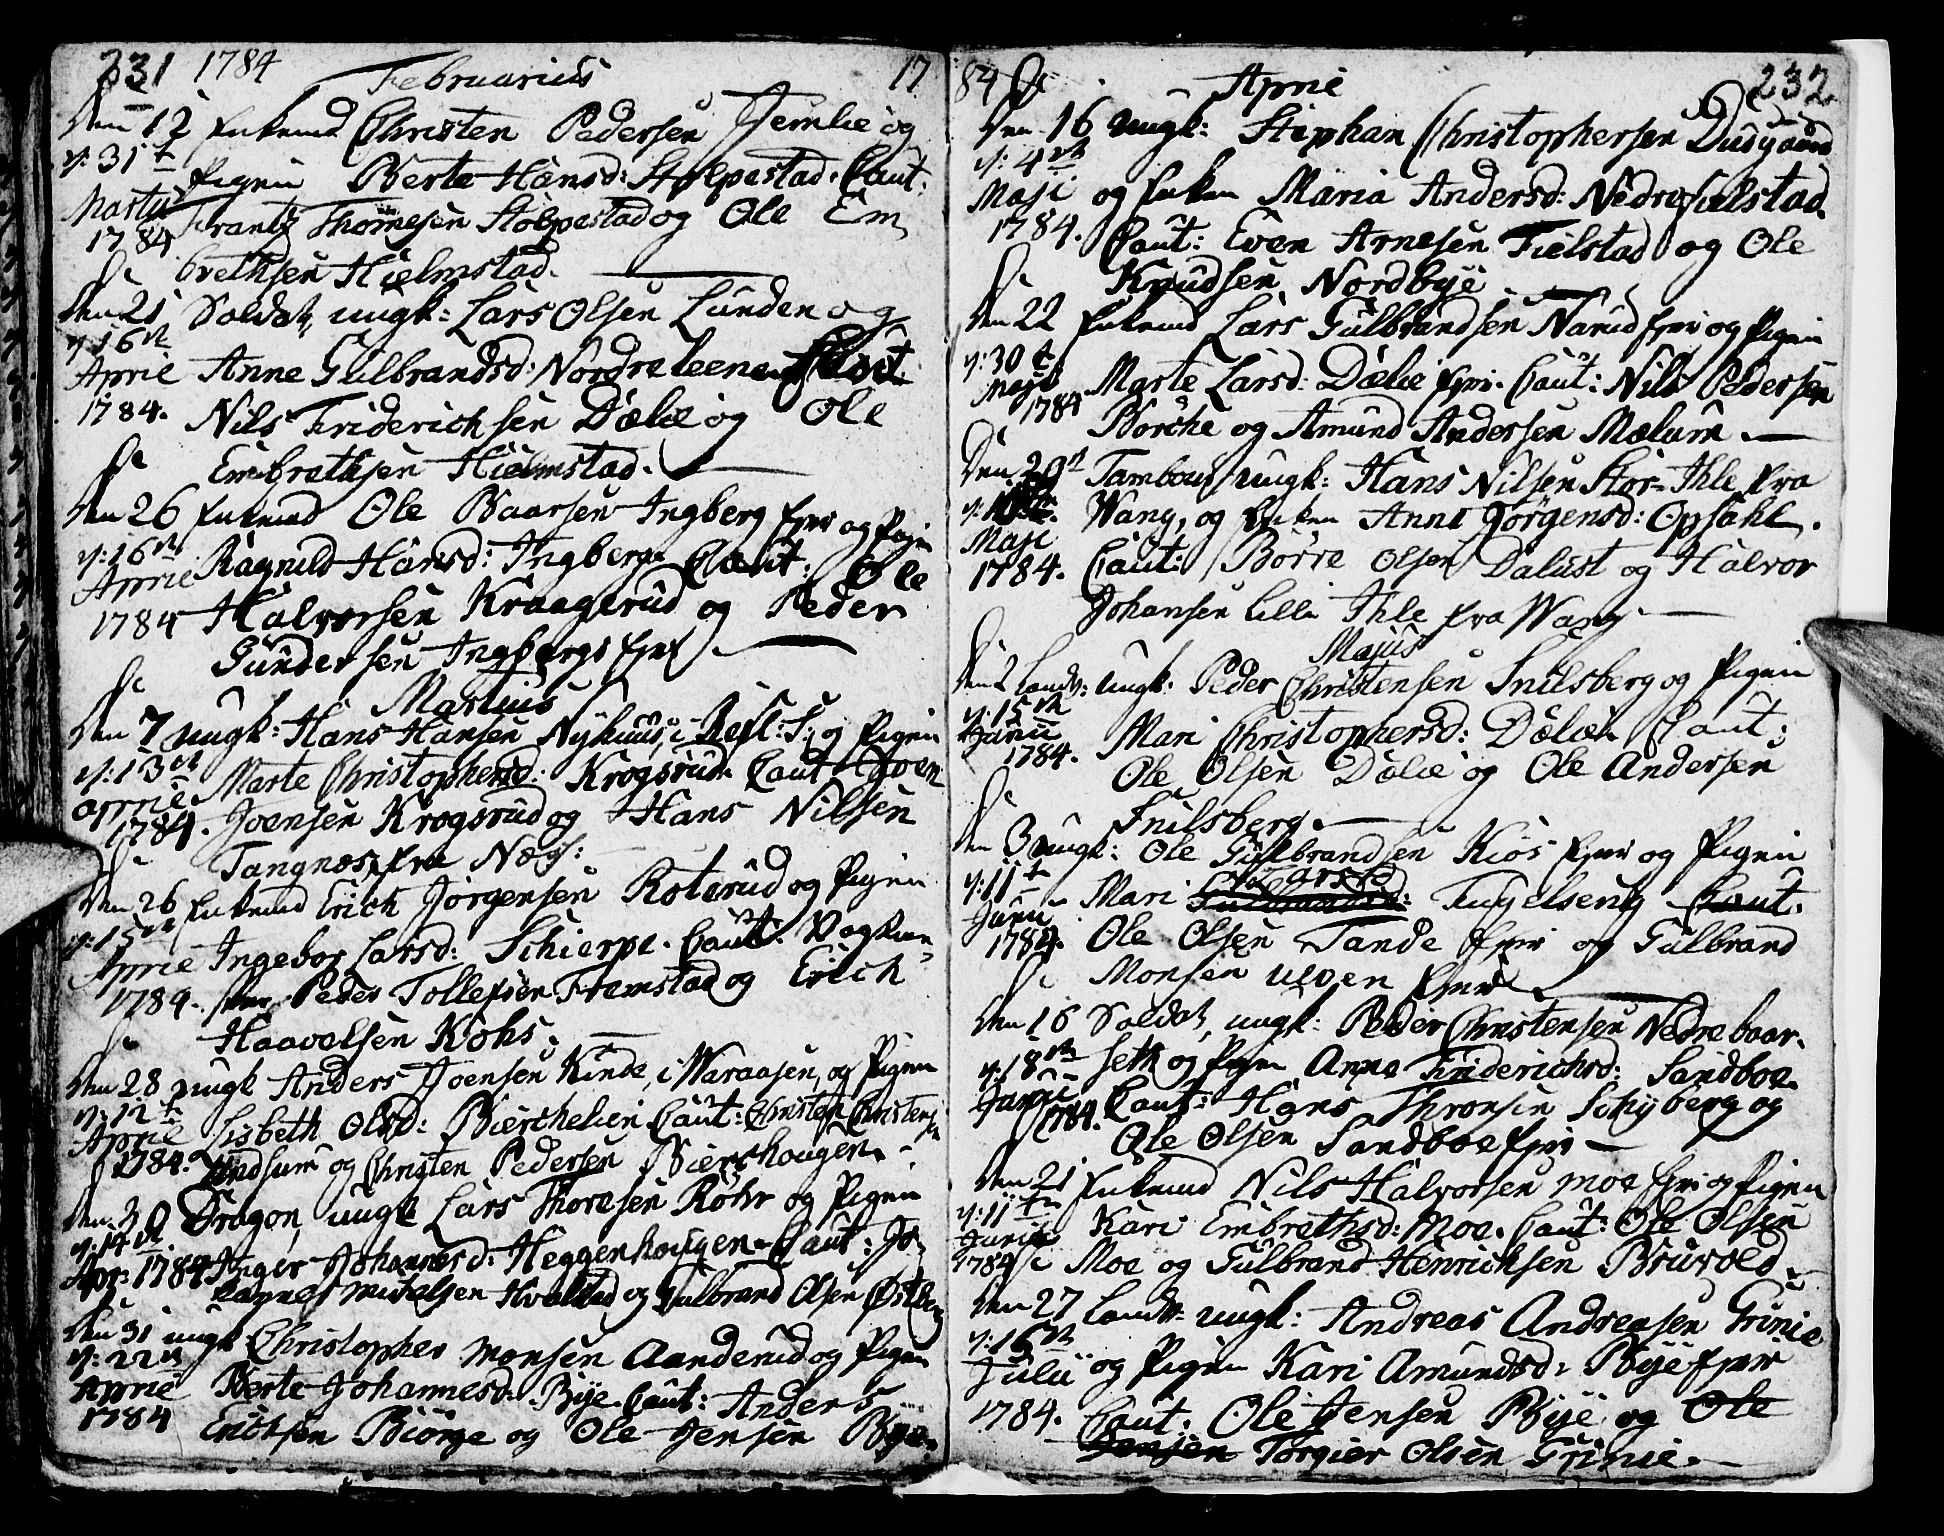 231 1784 Februarius 17
Den 12 Enkemd Christen Pedersen Jemlie og
v: 31t Pigen Berte Hansd: Stolpestad. Caut:
Martii Frantz Thomesen Stolpestad og Ole Em
1784 brethsen Hielmstad.
Den 21 Soldat, ungk: Lars Olsen Lunden og
v: 16de
April Anne Gulbrandsd: Nordre leene Caut
1784. Nils Friderichsen Dælie og Ole
Embrethsen Hielmstad.
Den 26 Enkemd Ole Baarsen Ingberg og Pigen
v: 16de Ragnild Hansd: Ingberg Caut: Ole
April
1784 Halvorsen Kraagerud og Peder
Gundersen Ingberg
Martius
Den 7 ungk: Hans Hansen Nyhuus, i og Pigen
v: 13de Marte Christophersd: Krogsrud. Caut: Joen
april
1784. Joensen Krogsrud og Hans Nilsen
Tangnæs fra Næs:
Den 26 Enkemd Erich Jörgensen Roterud og Pigen
v: 15de
April Ingebor Larsd: Schierpe. Caut:
1784. Peder Tollefsen Framstad og Erich
Haavelsen Kohs.
Den 28 ungk Anders Joensen Kinde, i Waraasen, og Pigen
v: 12t
April Lisbeth Olsd: Bierchelien Caut: Christen Christensen
1784. Lindsum og Christen Pedersen Bierkehougen
Den 30 Dragon, ungk Lars Thoresen Röhr og Pigen
v: 14de
Apr: 1784 Inger Johannesd: Heggenhougen. Caut: Jo-
hannes Mikelsen Hvalstad og Gulbrand Olsen Östberg
Den 31 ungk Christopher Monsen Aanderud og Pigen
v: 22de
April Berte Johannesd: Bye. Caut: Anders
1784 Erichsen Biörge og Ole Jensen Bye.
84 April 232
Den 16 ungk: Stephan Christophersen
v: 4de
Maji og Enken Maria Andersd: Nedre Fielstad
1784. Caut: Even Arnesen Fielstad og Ole
Knudsen Nordbye
Den 22 Enkemd Lars Gulbrandsen Narud og Pigen
v: 30t
Maji Marte Larsd: Dælie Caut: Nils Pedersen
1784 Borche og Amund Andersen Mælum
Den Tambour, ungk: Hans Nilsen Stor-Ihle fra
v: Wang, og Enken Anne Jörgensd: Opsahl.
Maji
1784. Caut: Börre Olsen Dalust og Halvor
Johansen lille Ihle fra Wang.
Majus
Den 2 Landv: ungk: Peder Christensen Snilsberg og Pigen
v: 15de
Junii Mari Christophersd: Dælie Caut:
1784. Ole Olsen Dælie og Ole Andersen
Snilsberg.
Den 3 ungk: Ole Gulbrandsen Kiös og Pigen
v: 11t Larsd
Junii Mari Gulbrandsd: Fugelseng Caut.
1784. Ole Olsen Tande og Gulbrand
Monsen Ulven
Den 16 Soldat, ungk: Peder Christensen Nedre baar-
v: 18de seth og Pigen Anne Friderichsd: Sandboe
Junii
1784. Caut: Hans Thronsen Schyberg og
Ole Olsen Sandboe
Den 21 Enkemd Nils Halvorsen Moe og Pigen
v: 11t
Junii Kari Embrethsd: Moe. Caut: Ole Olsen
1784 Moe og Gulbrand Henrichsen Bruvold
Den 27 Landv: ungk: Andreas Andreasen Grinie
v: 16de
Julii og Pigen Kari Amundsd: Bye
1784. Caut. Ole Jensen Bye og Ole
Jensen Torgier Olsen Grinie.